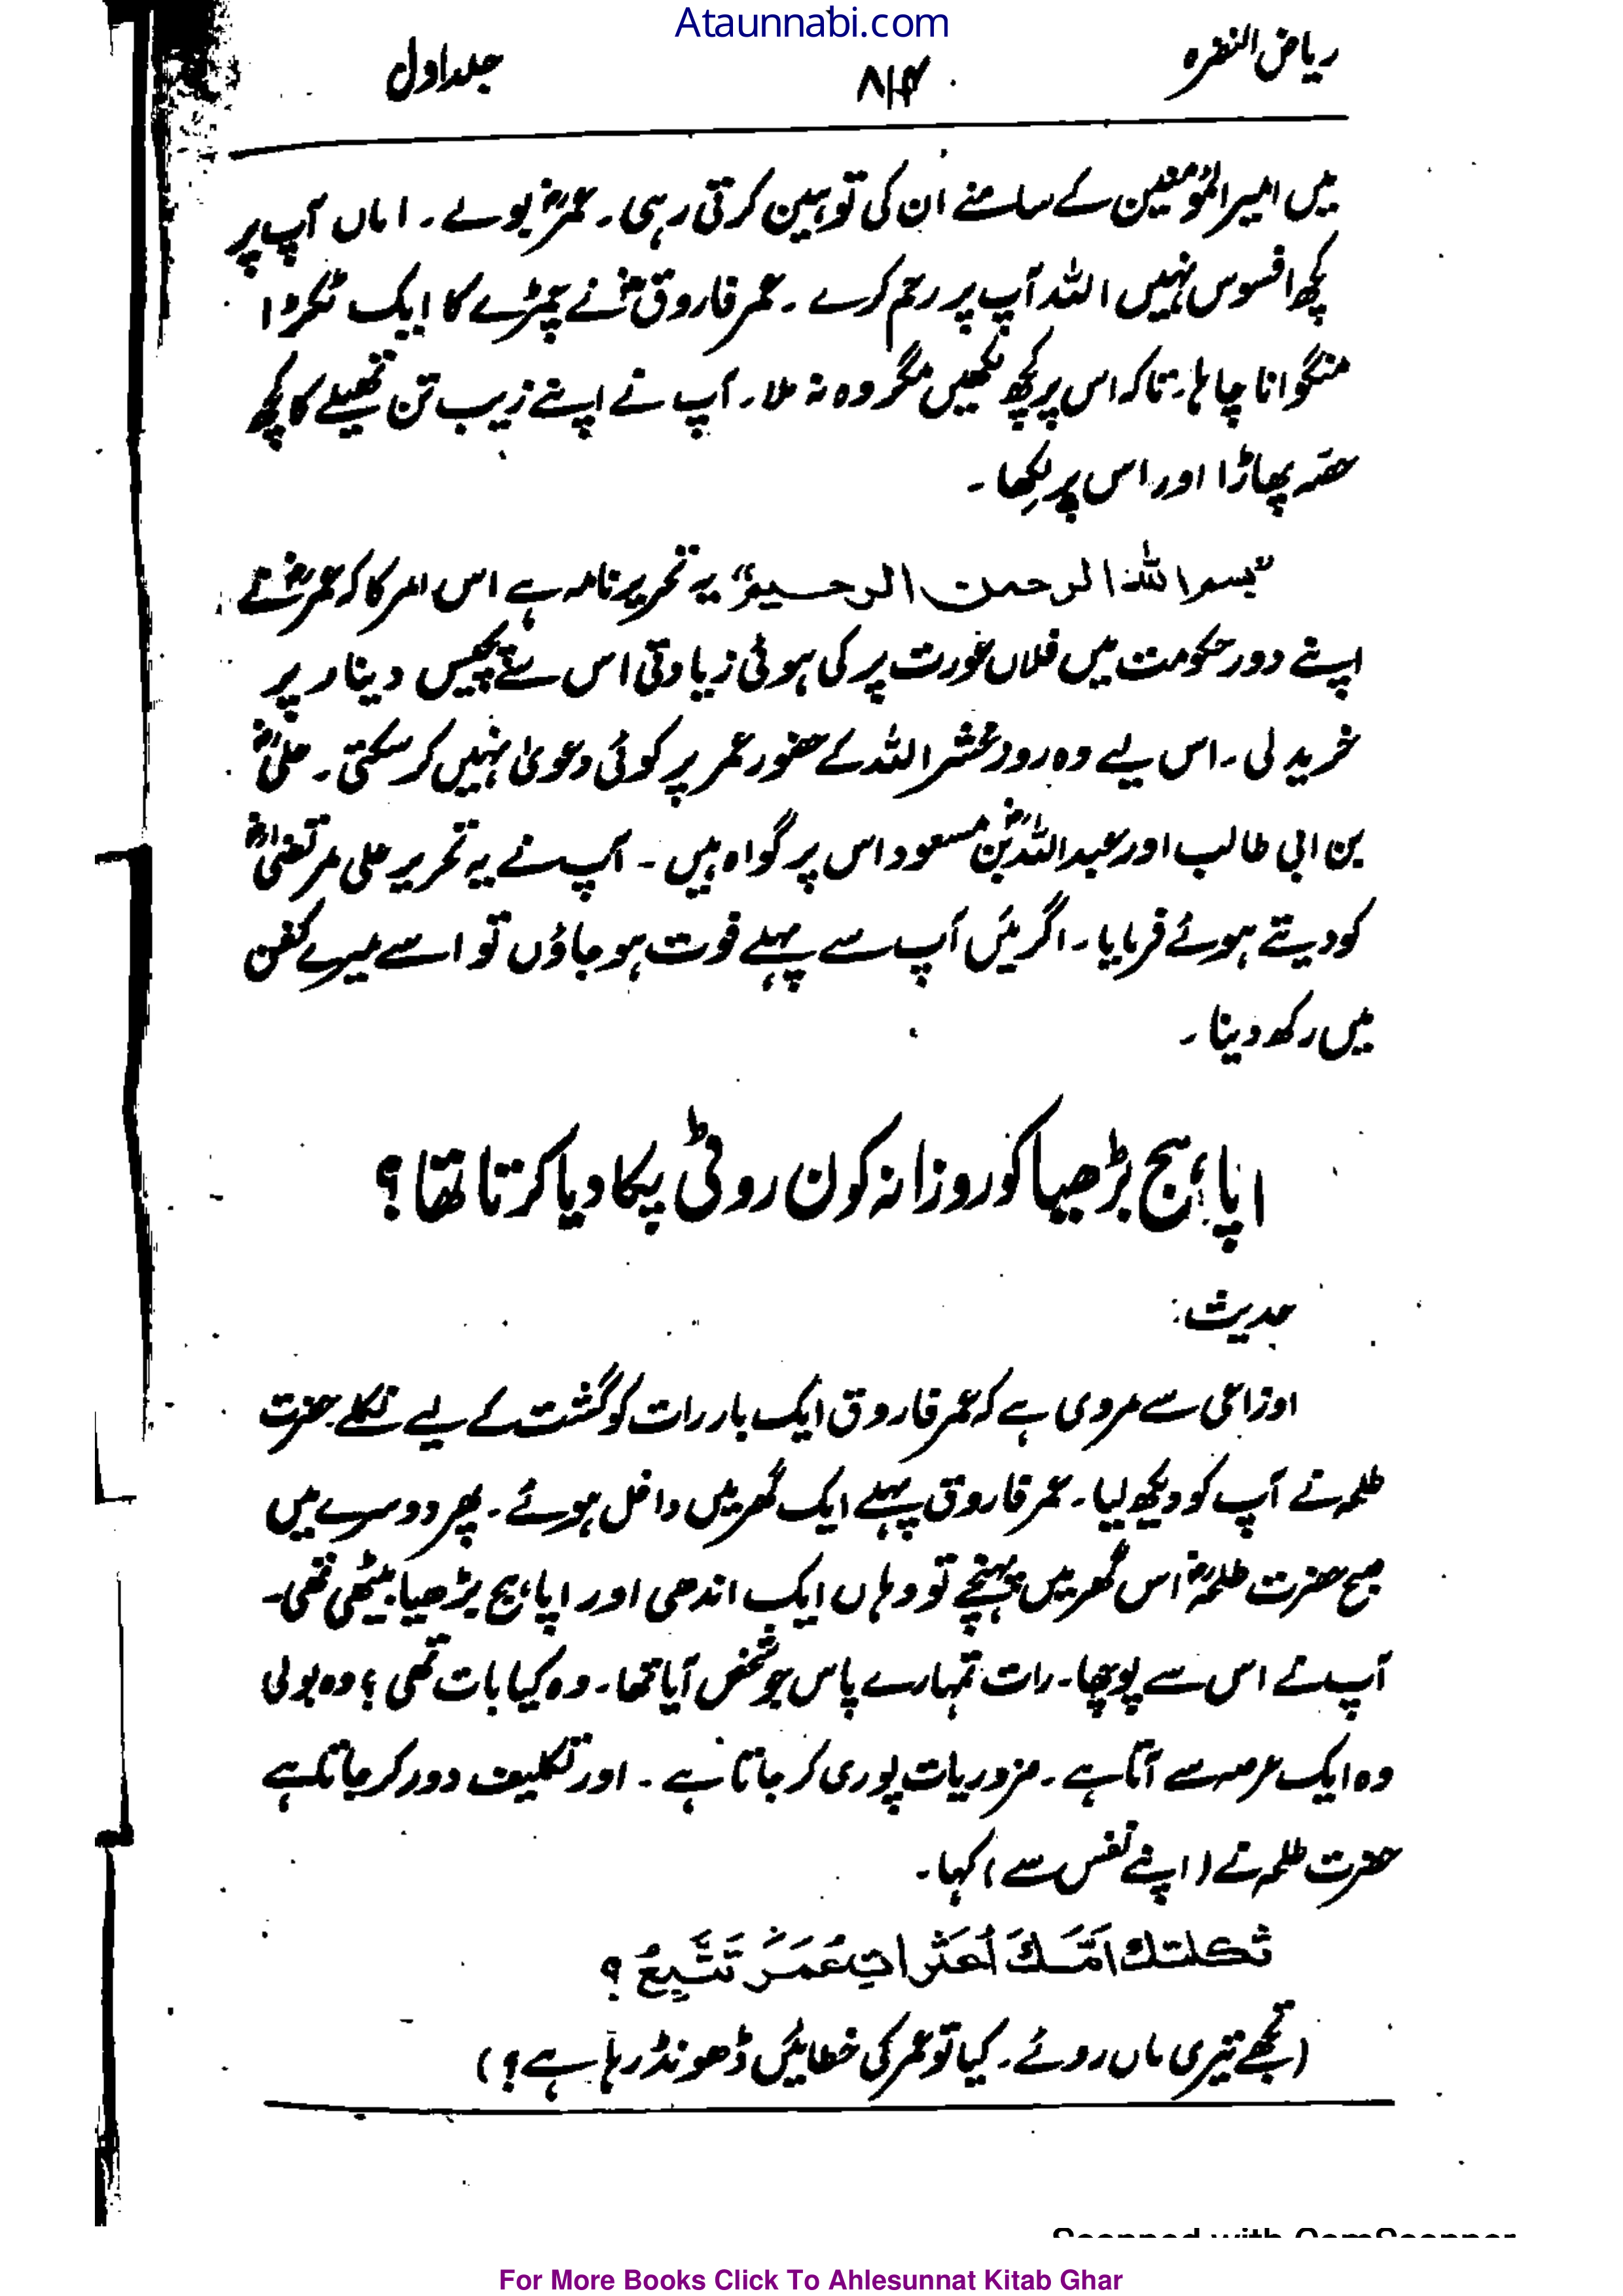 Ataunnabi.com
ریاض النضرہ
جلد اول
میں امیر المؤمنین کے سامنے ان کی توہین کرتی رہی۔ عمرؓ بولے۔ اماں آپ پر
کچھ افسوس نہیں اللہ آپ پر رحم کرے۔ عمر فاروقؓ نے چمڑے کا ایک ٹکڑا
منگوانا چاہا۔ تاکہ اس پر کچھ لکھیں مگر وہ نہ ملا۔ آپ نے اپنے زیب تن تھیلے کا کچھ
حصہ پھاڑا اور اس پر لکھا۔
”بسم اللہ الرحمن الرحیم“ یہ تحریر نامہ ہے اس امر کا کہ عمرؓ نے
اپنے دور حکومت میں فلاں عورت پر کی ہوئی زیادتی اس سے پچیس دینار پر
خرید لی۔ اس لیے وہ روز محشر اللہ کے حضور عمر پر کوئی دعویٰ نہیں کر سکتی۔ علیؓ
بن ابی طالب اور عبداللہؓ بن مسعود اس پر گواہ ہیں۔ آپ نے یہ تحریر علی مرتضیٰؓ
کو دیتے ہوئے فرمایا۔ اگر میں آپ سے پہلے فوت ہو جاؤں تو اسے میرے کفن
میں رکھ دینا۔
اپاہج بڑھیا کو روزانہ کون روٹی پکا دیا کرتا تھا؟
حدیث:
اوزاعی سے مروی ہے کہ عمر فاروق ایک بار رات کو گشت کے لیے نکلے حضرت
طلحہ نے آپ کو دیکھ لیا۔ عمر فاروق پہلے ایک گھر میں داخل ہوئے۔ پھر دوسرے میں
صبح حضرت طلحہؓ اس گھر میں پہنچے تو وہاں ایک اندھی اور اپاہج بڑھیا بیٹھی تھی۔
آپ نے اس سے پوچھا۔ رات تمہارے پاس جو شخص آیا تھا۔ وہ کیا بات تھی؟ وہ بولی
وہ ایک عرصہ سے آتا ہے۔ ضروریات پوری کر جاتا ہے۔ اور تکلیف دور کر جاتا ہے
حضرت طلحہ نے (اپنے نفس سے) کہا۔
ثکلتك اُمُّكَ اَعَثَراتِ عُمَرَ تَتَّبِعُ؟
(تجھے تیری ماں روئے۔ کیا تو عمر کی خطائیں ڈھونڈ رہا ہے؟)
For More Books Click To Ahlesunnat Kitab Ghar